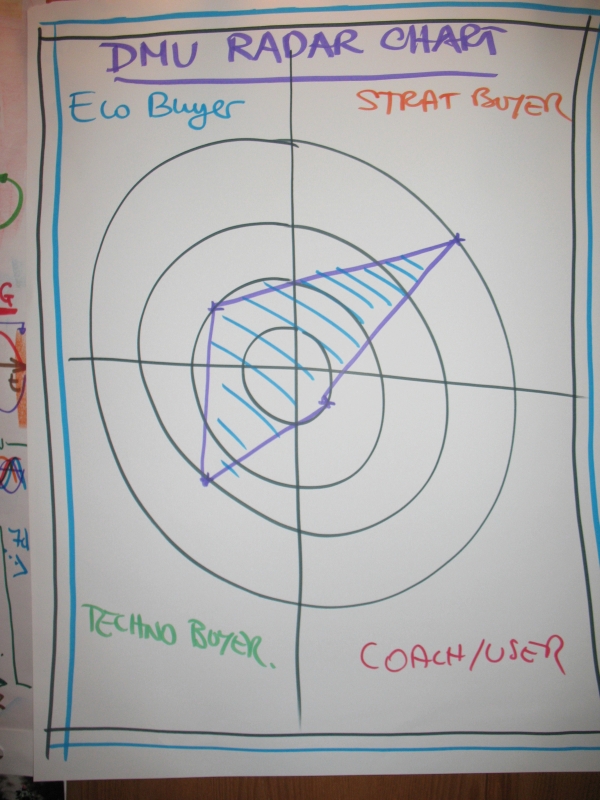 DMU RADAR CHART
Eco Buyer
STRAT BUYER
G
TECHNO BUYER.
COACH/USER